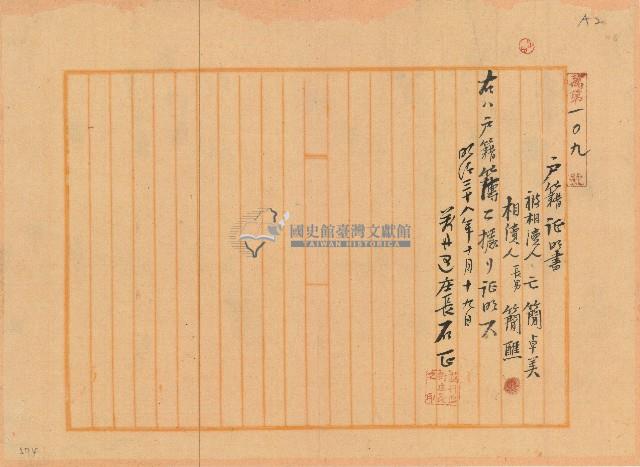 A2
萬第一〇九號
戶籍証明書
被相續人 亡 簡卓美
相續人 長男 簡醮
右ハ戶籍簿ニ據リ証明ス
明治三十八年十月十九日
萬丹區庄長 石正
國史館臺灣文獻館
TAIWAN HISTORICA